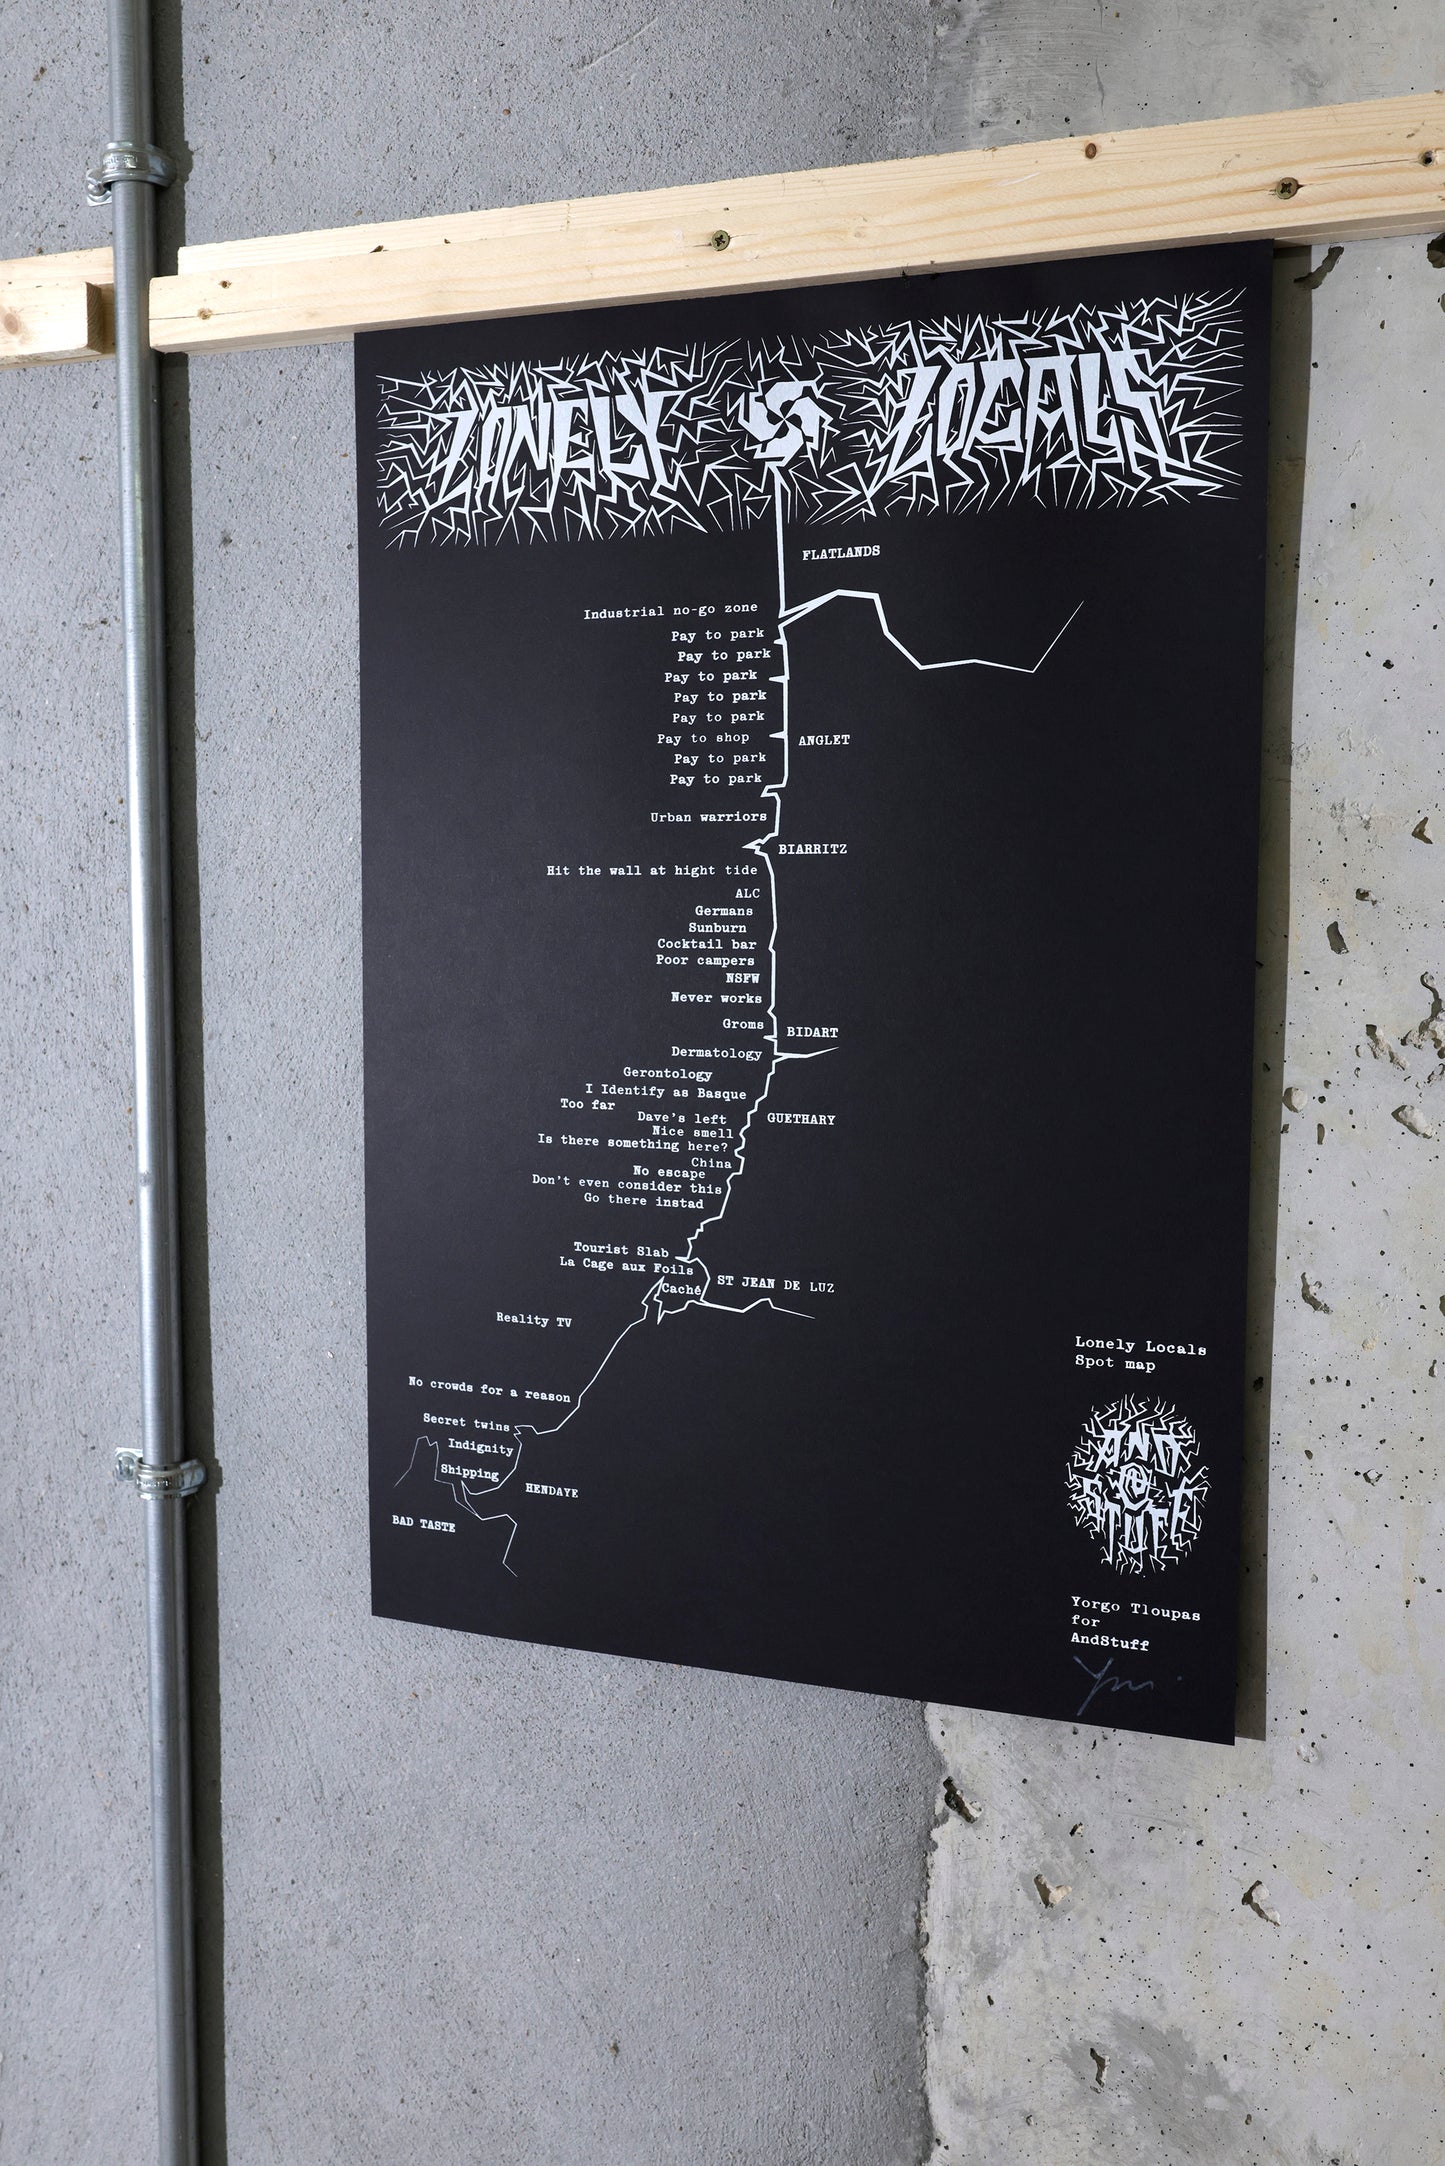 LONELY LOCALS
FLATLANDS
Industrial no-go zone
Pay to park
Pay to park
Pay to park
Pay to park
Pay to park
Pay to shop
ANGLET
Pay to park
Pay to park
Urban warriors
BIARRITZ
Hit the wall at hight tide
ALC
Germans
Sunburn
Cocktail bar
Poor campers
NSFW
Never works
Groms
BIDART
Dermatology
Gerontology
I Identify as Basque
Too far
Dave's left
GUETHARY
Nice smell
Is there something here?
China
No escape
Don't even consider this
Go there instad
Tourist Slab
La Cage aux Foils
Caché
ST JEAN DE LUZ
Reality TV
No crowds for a reason
Secret twins
Indignity
Shipping
HENDAYE
BAD TASTE
Lonely Locals
Spot map
AND
STUFF
Yorgo Tloupas
for
AndStuff